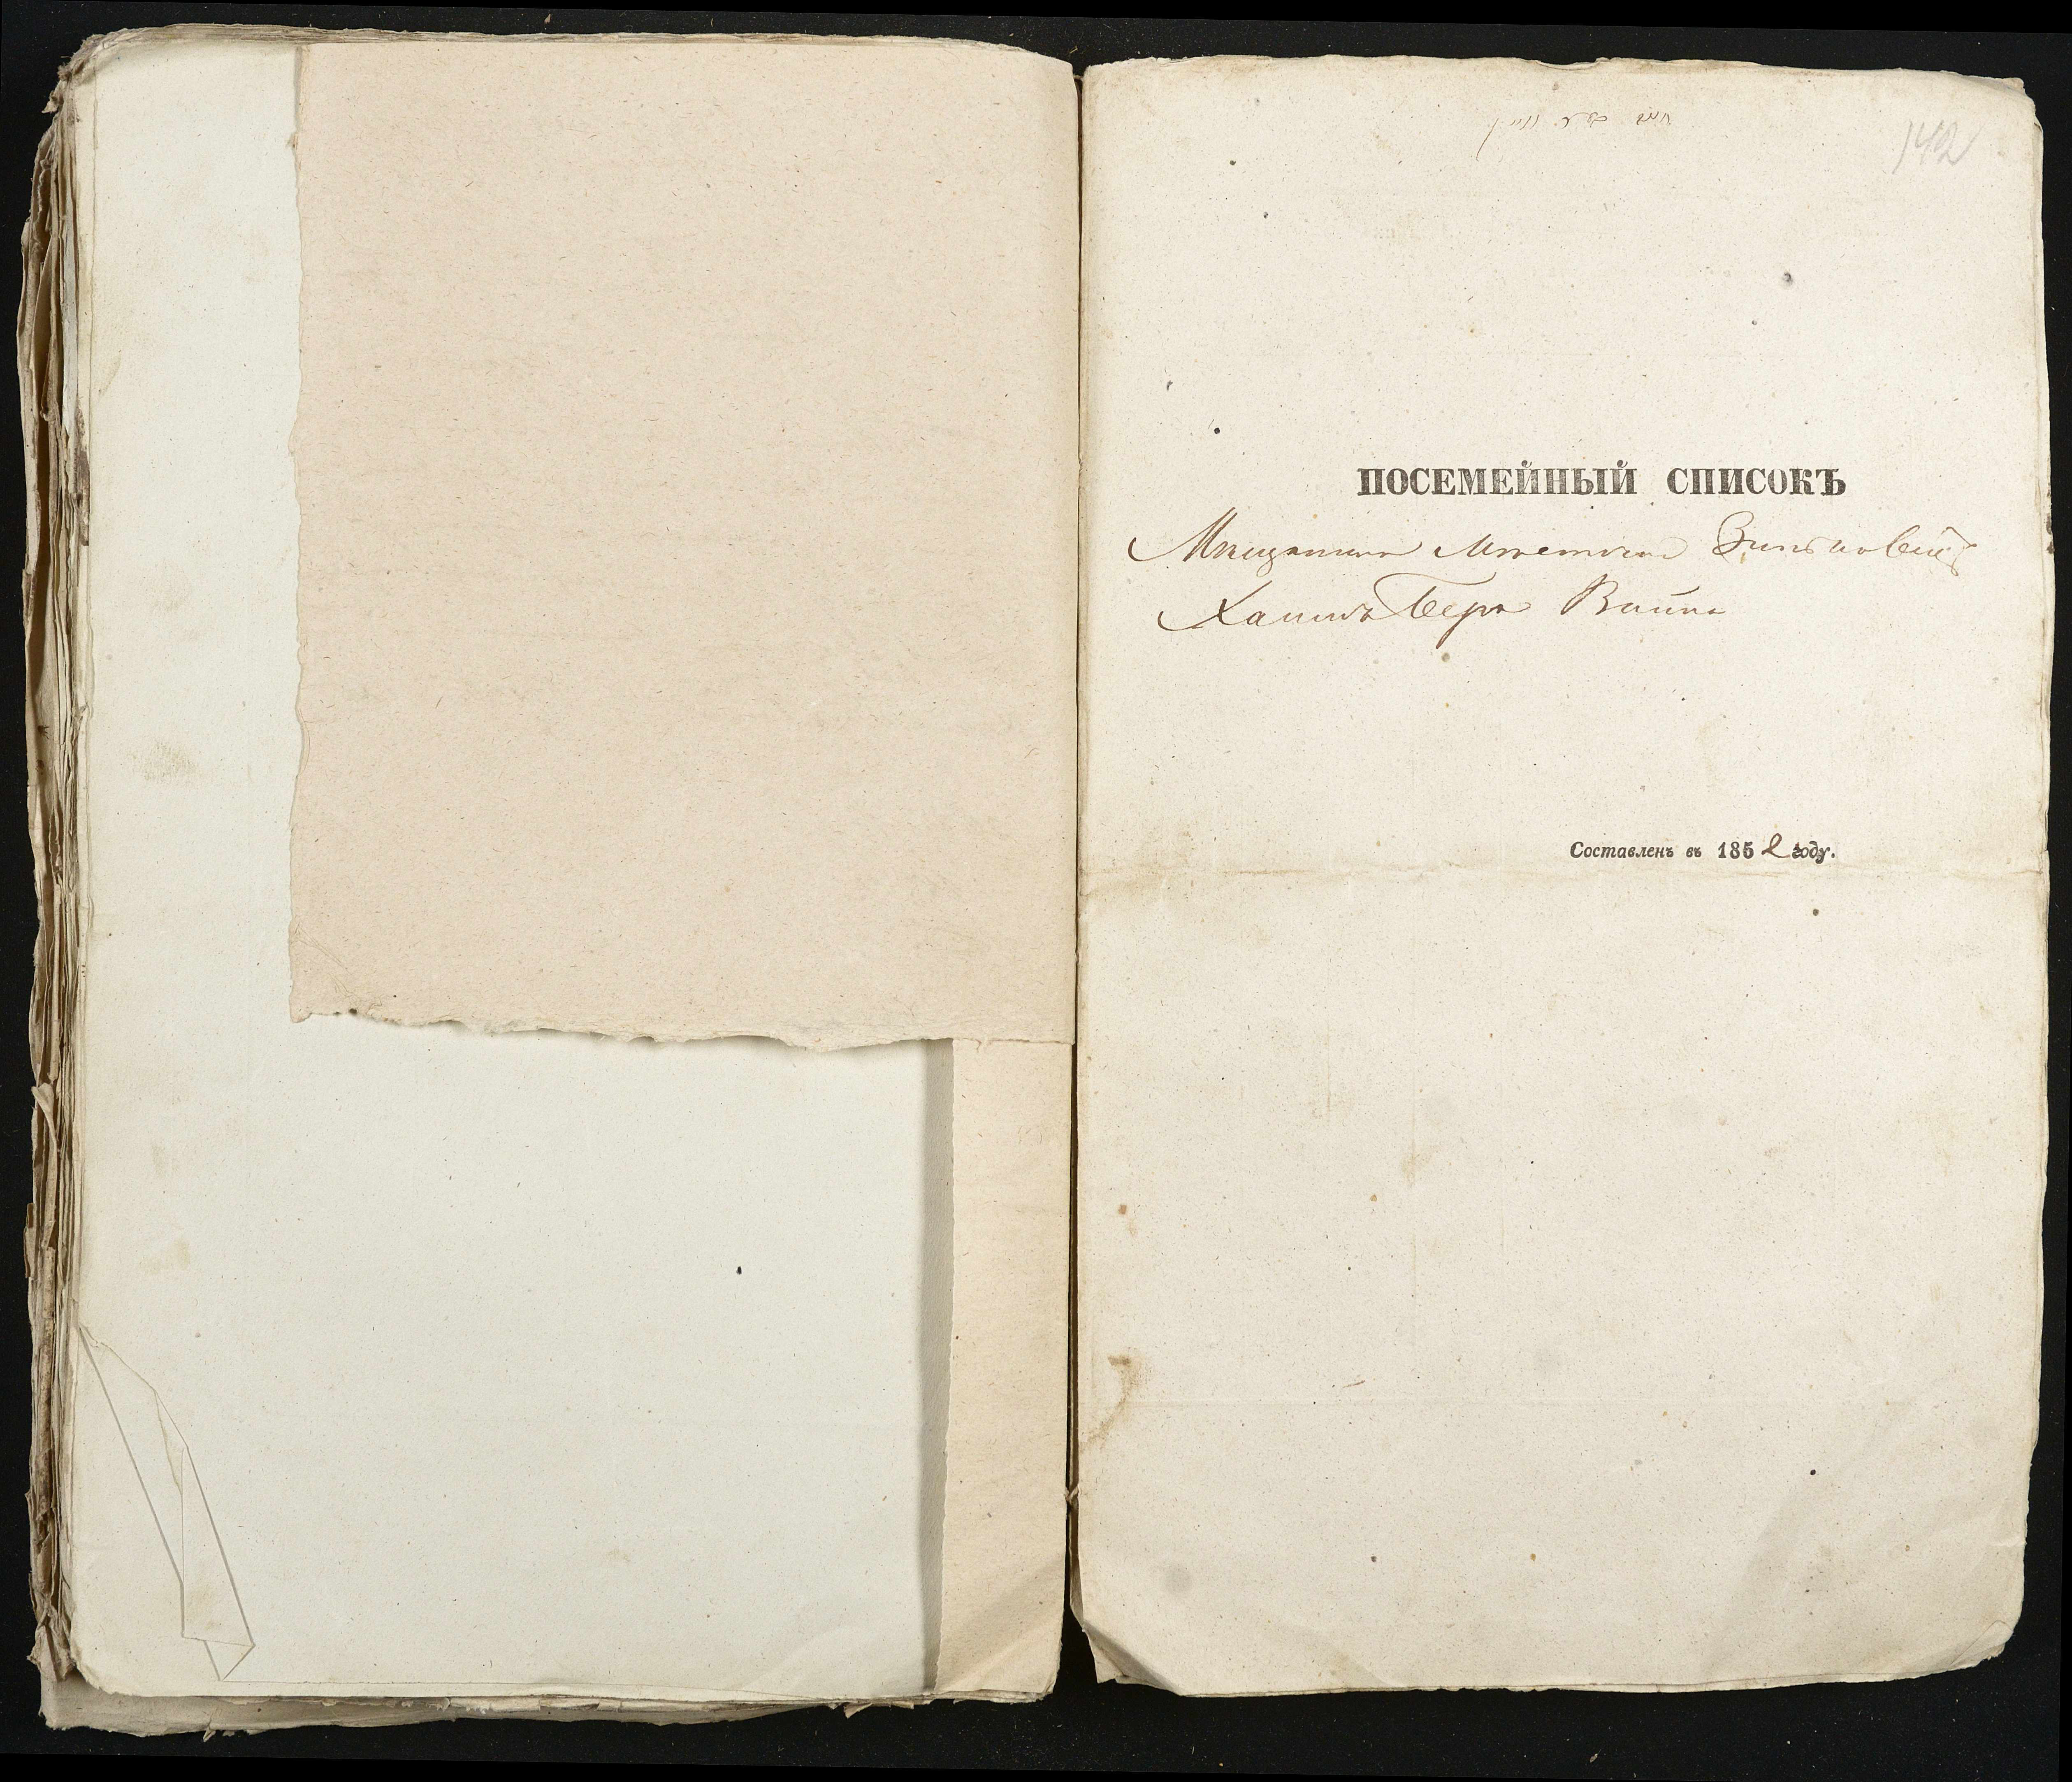 142
ПОСЕМЕЙНЫЙ СПИСОКЪ
Мѣщанина Мѣстечка Зиньковецъ
Хаимъ Беръ Вайна
Составленъ въ 1852 году.